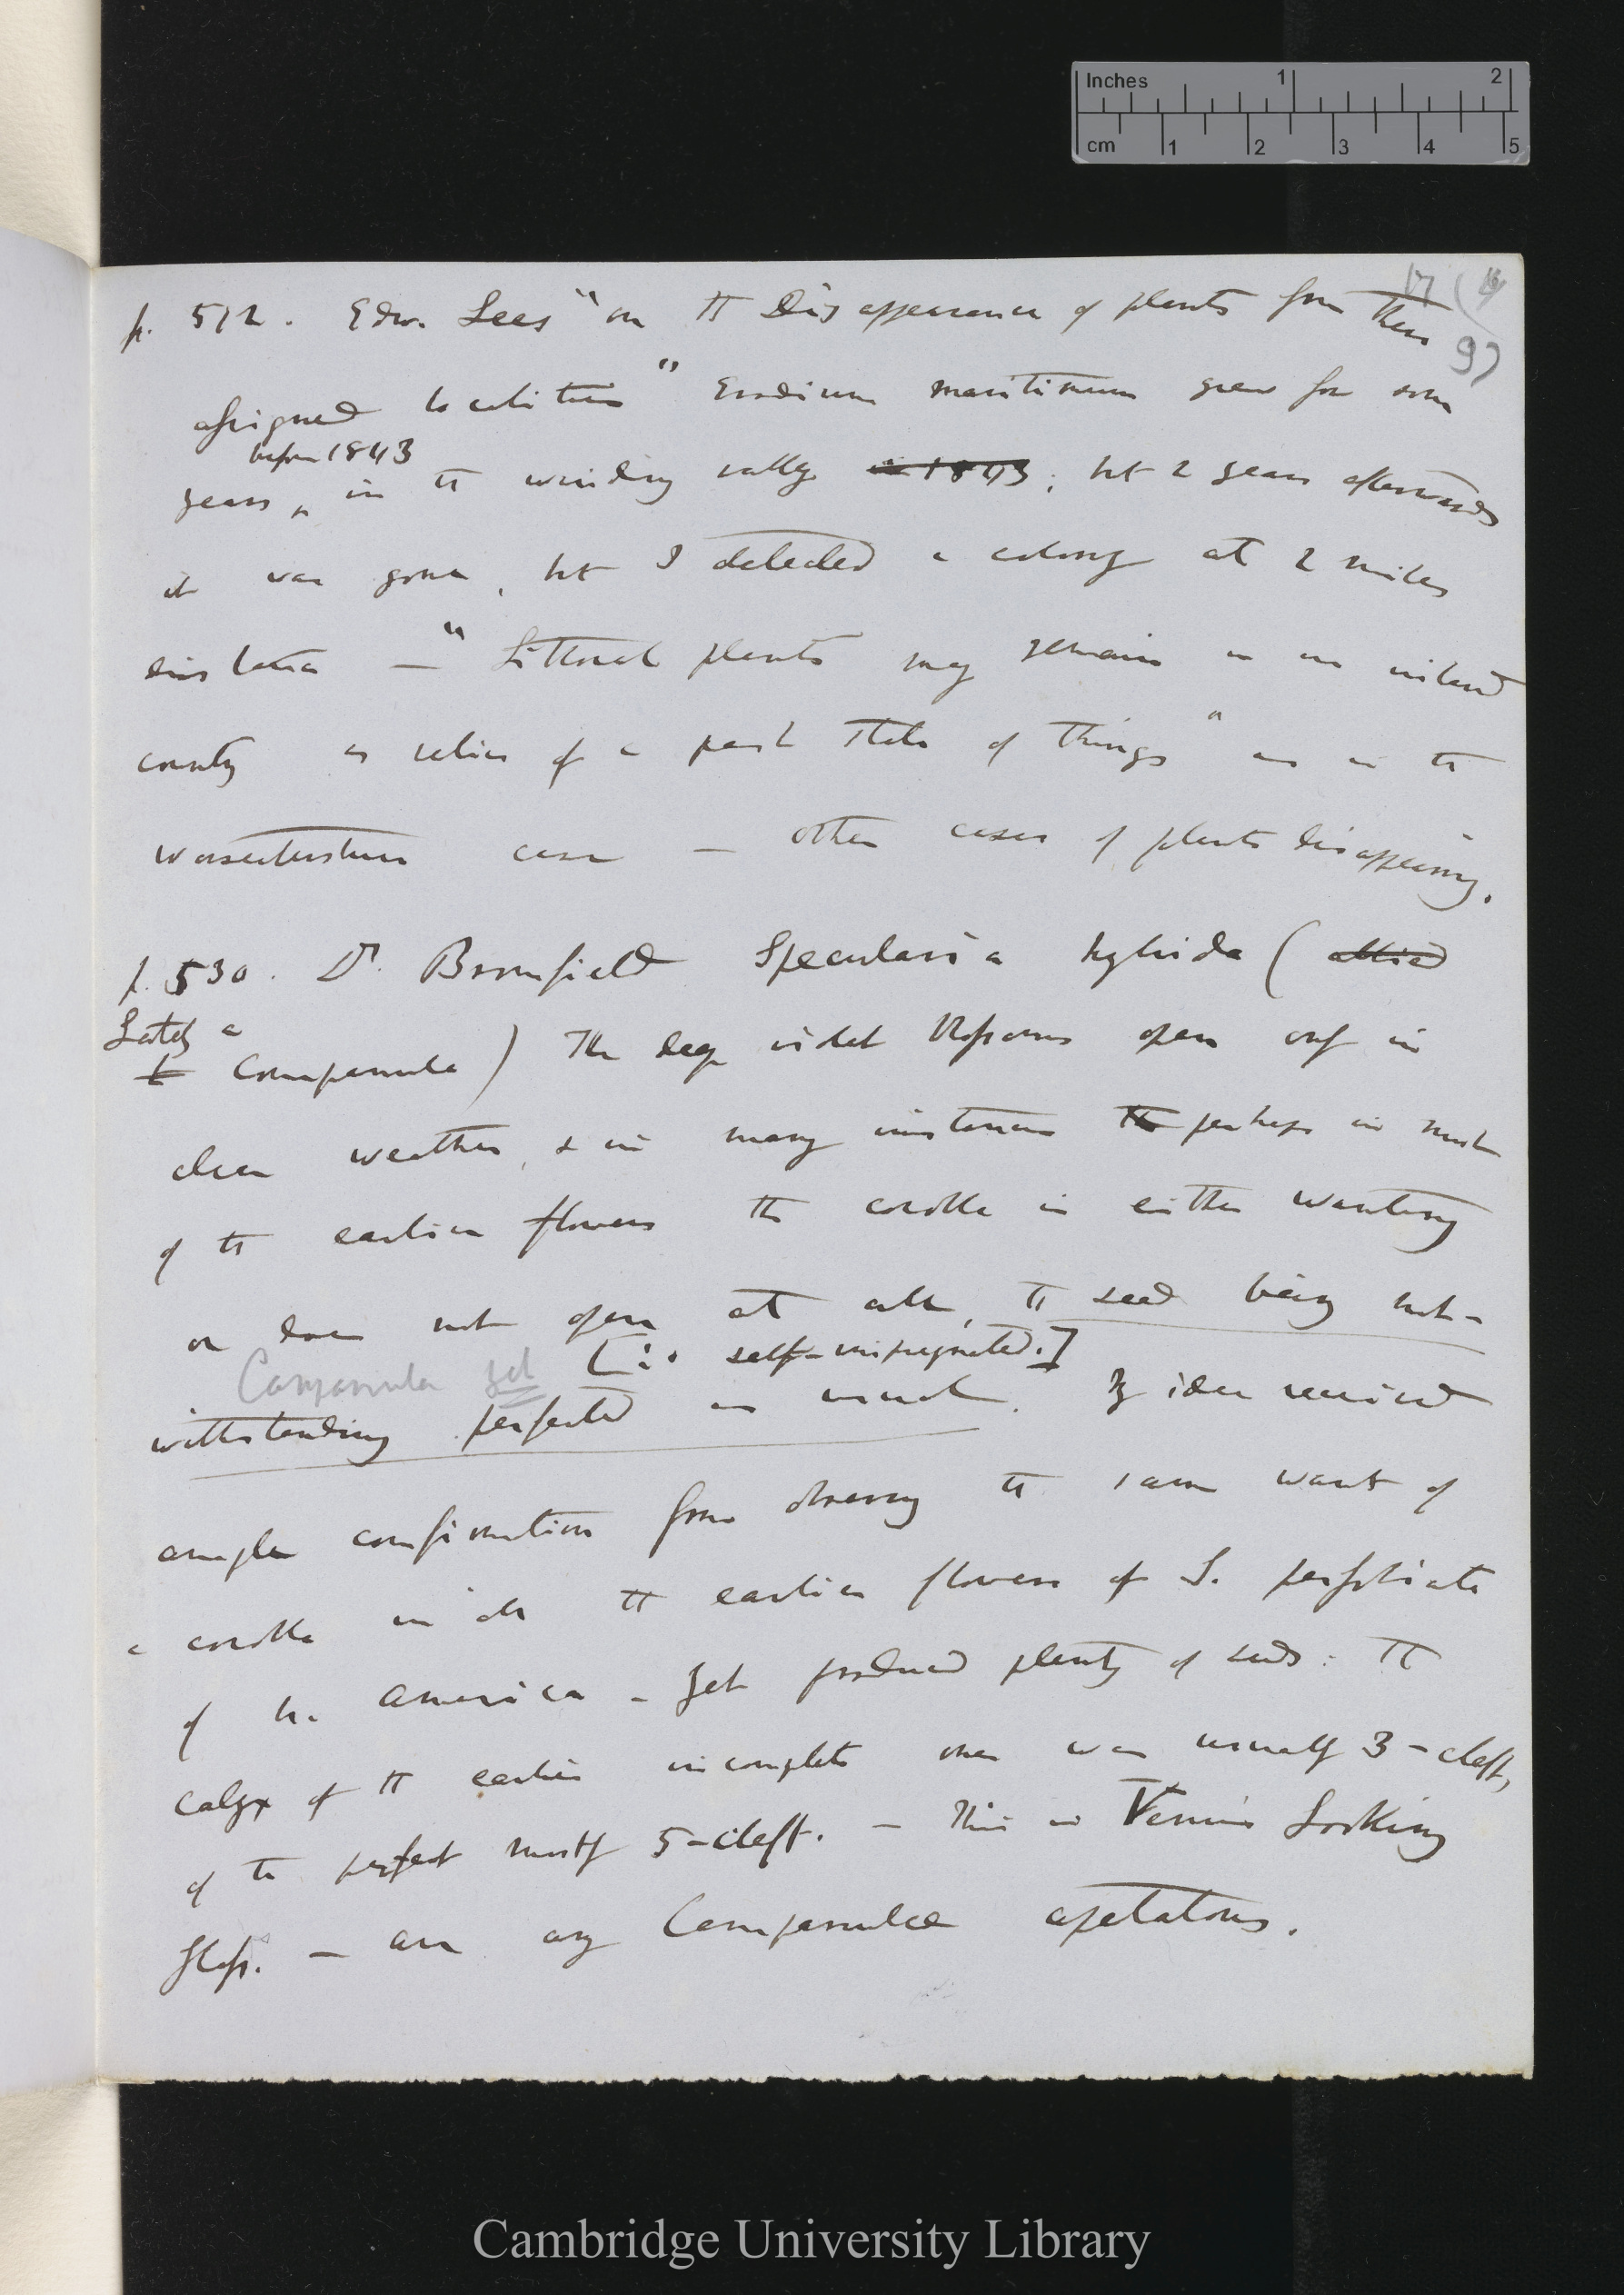 Inches 1 2
cm 1 2 3 4 5
17 (16
9)
p. 512. Edw. Lees "on the Disappearance of plants from their
assigned localities" Erodium maritimum grew for some
before 1843
years, in the winding valley in 1843; but 2 years afterwards
it was gone, but I detected a colony at 2 miles
distance — "Littoral plants may remain in an inland
county as relics of a past state of things" as in the
Worcestershire case — other cases of plants disappearing.
p. 530. Dr. Bromfield Specularia hybrida (allied
Lately a
to Campanula) The deep violet blossoms open only in
clear weather, & in many instances the perhaps in most
of the earlier flowers the corolla is either wanting
or does not open at all, the seed being not-
[∴ self-impregnated.]
Campanula
withstanding perfected as usual. My idea received
ample confirmation from observing the same want of
a corolla in all the earlier flowers of S. perfoliata
of N. America - yet produced plenty of seeds: The
calyx of the earlier incomplete ones was usually 3-cleft,
of the perfect mostly 5-cleft. — This is Venus's Looking
Glass. — are any Campanulae apetalous.
Cambridge University Library